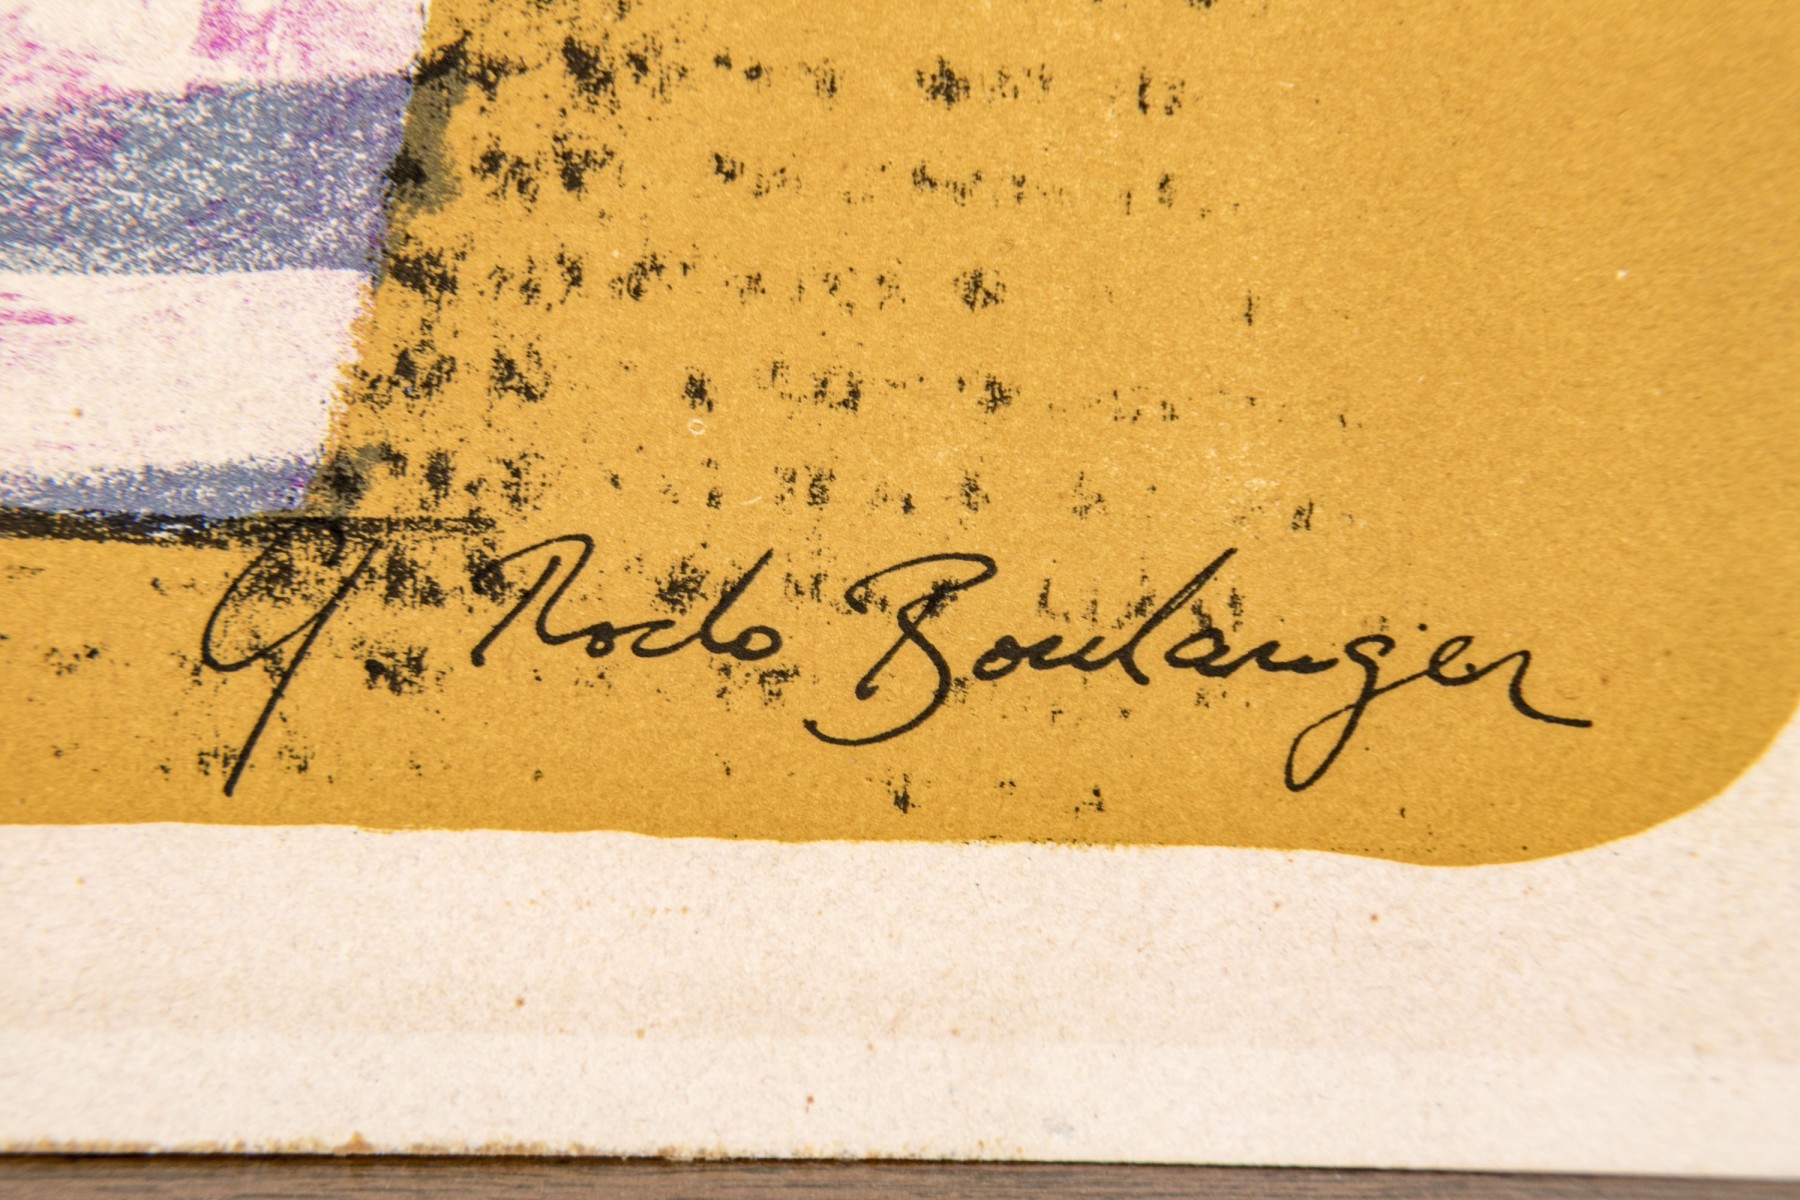 G. Rodo Boulanger